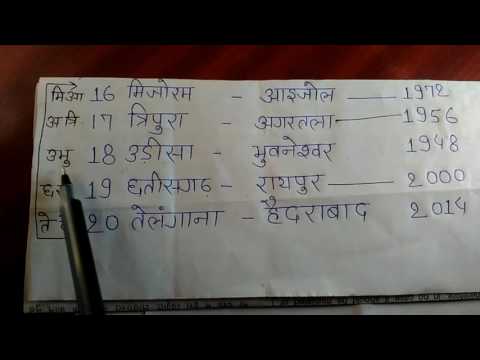 मिआ 16 मिजोरम - आइजोल — 1972
अत्रि 17 त्रिपुरा - अगरतला — 1956
उभु 18 उड़ीसा - भुवनेश्वर 1948
19 छत्तीसगढ़ - रायपुर — 2000
ते है 20 तेलंगाना - हैदराबाद 2014